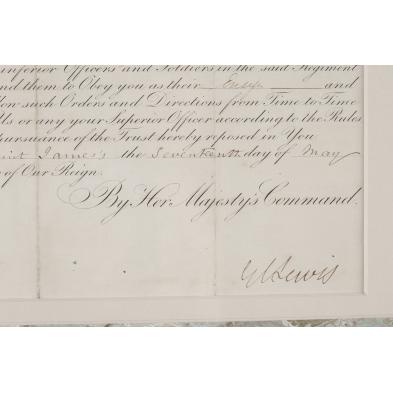 inferior Officers and Soldiers in the said Regiment
and them to Obey you as their Ensign and
low such Orders and Directions from Time to Time
Us or any your Superior Officer according to the Rules
Pursuance of the Trust hereby reposed in You
Saint James's the Seventeenth day of May
of Our Reign.
By Her Majesty's Command.
G C Lewis